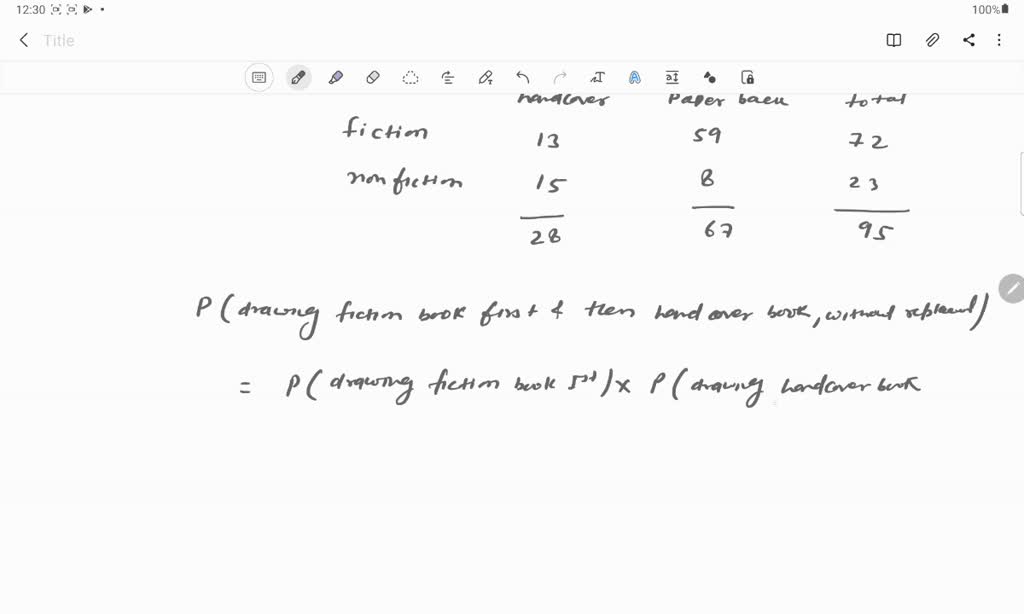 12:30 100%
Title
hardcover Paper back total
fiction 13 59 72
nonfiction 15 8 23
28 67 95
P (drawing fiction book first & then hard cover book, without
= P (drawing fiction book 1st) x P (drawing hardcover book